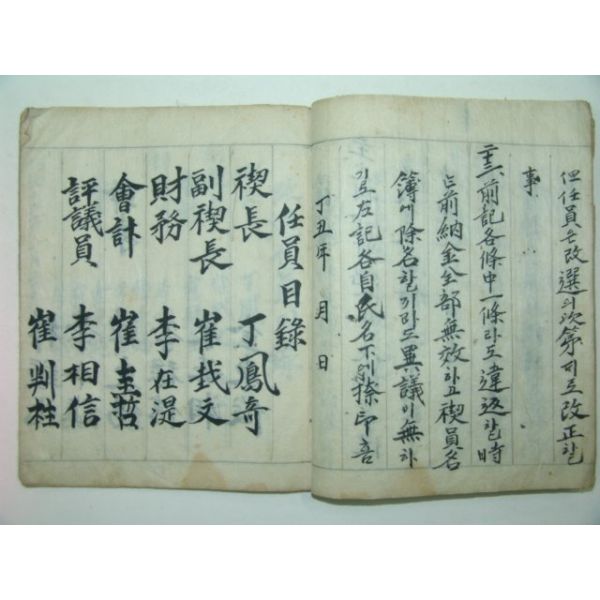 但任員은改選의次第따로改正할
事
二十六、前記各條中一條라도違返할時
난前納金全部無效라고稧員名
簿에除名할끼라도異議이無하
기로左記各自民名下捺印홈
丁丑年 月 日
任員目錄
稧長 丁鳳奇
副稧長 崔哉文
財務 李在湜
會計 崔圭哲
評議員 李相信
崔判柱